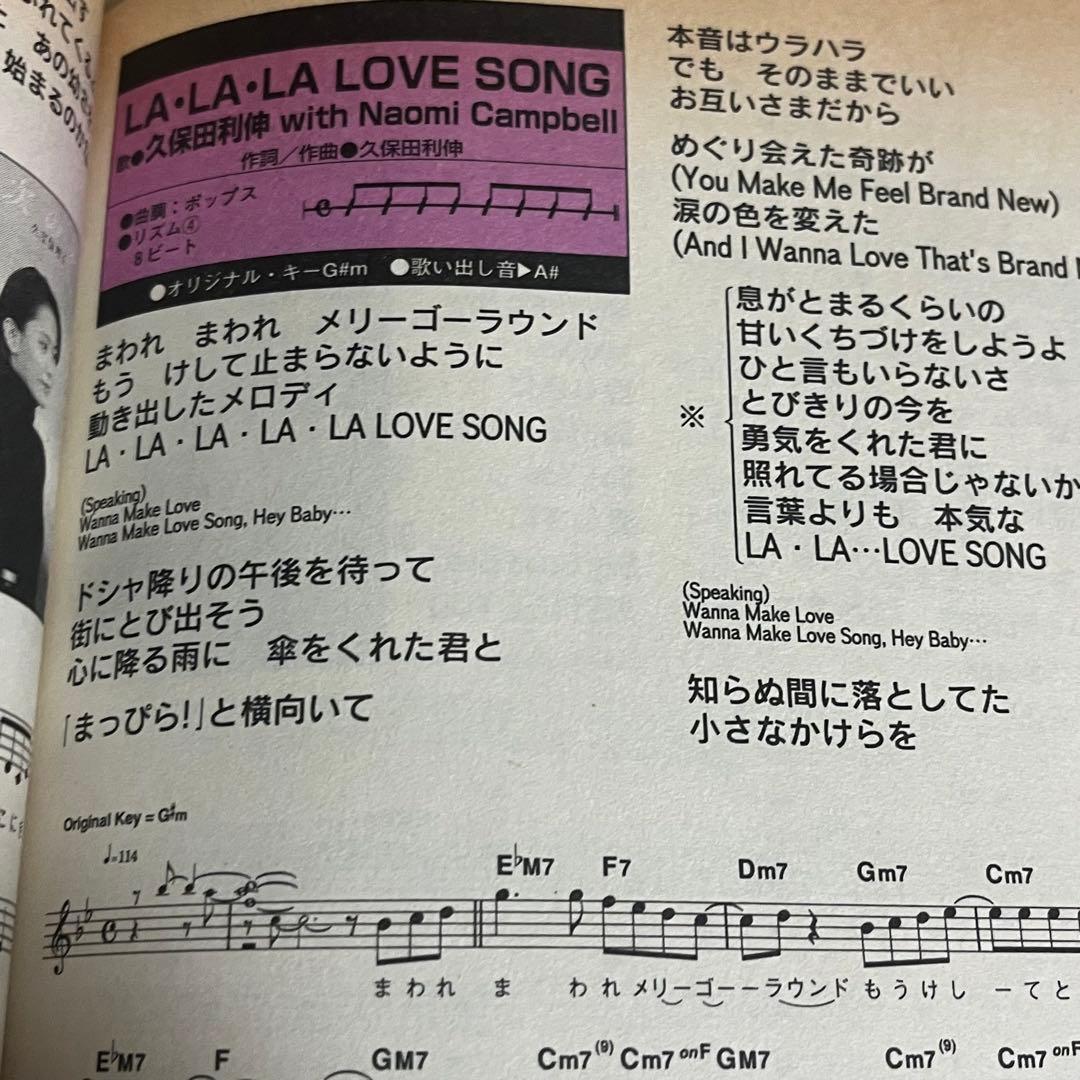 LA・LA・LA LOVE SONG
歌●久保田利伸 with Naomi Campbell
作詞／作曲●久保田利伸
●曲調：ポップス
●リズム④
8ビート
●オリジナル・キーG#m ●歌い出し音▶A#
まわれ まわれ メリーゴーラウンド
もう けして止まらないように
動き出したメロディ
LA・LA・LA・LA LOVE SONG
(Speaking)
Wanna Make Love
Wanna Make Love Song, Hey Baby…
ドシャ降りの午後を待って
街にとび出そう
心に降る雨に 傘をくれた君と
「まっぴら!」と横向いて
本音はウラハラ
でも そのままでいい
お互いさまだから
めぐり会えた奇跡が
(You Make Me Feel Brand New)
涙の色を変えた
(And I Wanna Love That's Brand
息がとまるくらいの
甘いくちづけをしようよ
ひと言もいらないさ
※ とびきりの今を
勇気をくれた君に
照れてる場合じゃないか
言葉よりも 本気な
LA・LA…LOVE SONG
(Speaking)
Wanna Make Love
Wanna Make Love Song, Hey Baby…
知らぬ間に落としてた
小さなかけらを
Original Key = G♯m
♩=114
E♭M7 F7 Dm7 Gm7 Cm7
まわれ ま われ メリーゴーーラウンド もうけし ーてと
E♭M7 F GM7 Cm7(9) Cm7onF GM7 Cm7(9) Cm7onF